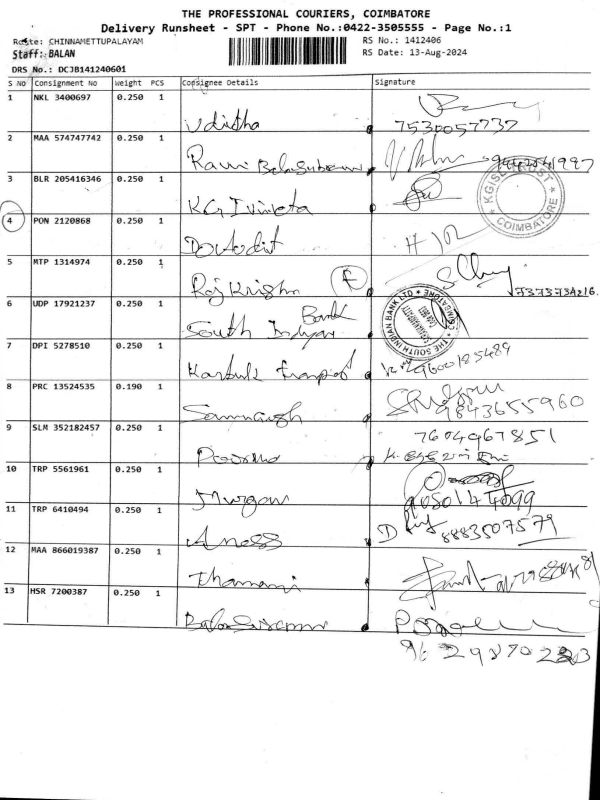 THE PROFESSIONAL COURIERS, COIMBATORE
Delivery Runsheet - SPT - Phone No.:0422-3505555 - Page No.:1
Route: CHINNAMETTUPALAYAM
RS No.: 1412406
Staff: BALAN
RS Date: 13-Aug-2024
DRS No.: DCJB141240601
S No Consignment No Weight PCS Consignee Details Signature
1 NKL 3400697 0.250 1 Uditha
7530057737
2 MAA 574747742 0.250 1 Ravi
3 BLR 205416346 0.250 1 KG
KGISL TRUST * COIMBATORE
4 PON 2120868 0.250 1
5 MTP 1314974 0.250 1 Raj Krishn
6 UDP 17921237 0.250 1 South Indyan Bank
THE SOUTH INDIAN BANK LTD
7 DPI 5278510 0.250 1
9600185489
8 PRC 13524535 0.190 1
9843655960
9 SLM 352182457 0.250 1
7604967851
10 TRP 5561961 0.250 1 Murgan
9050144099
11 TRP 6410494 0.250 1 Aness
8883507579
12 MAA 866019387 0.250 1 Thamani
13 HSR 7200387 0.250 1